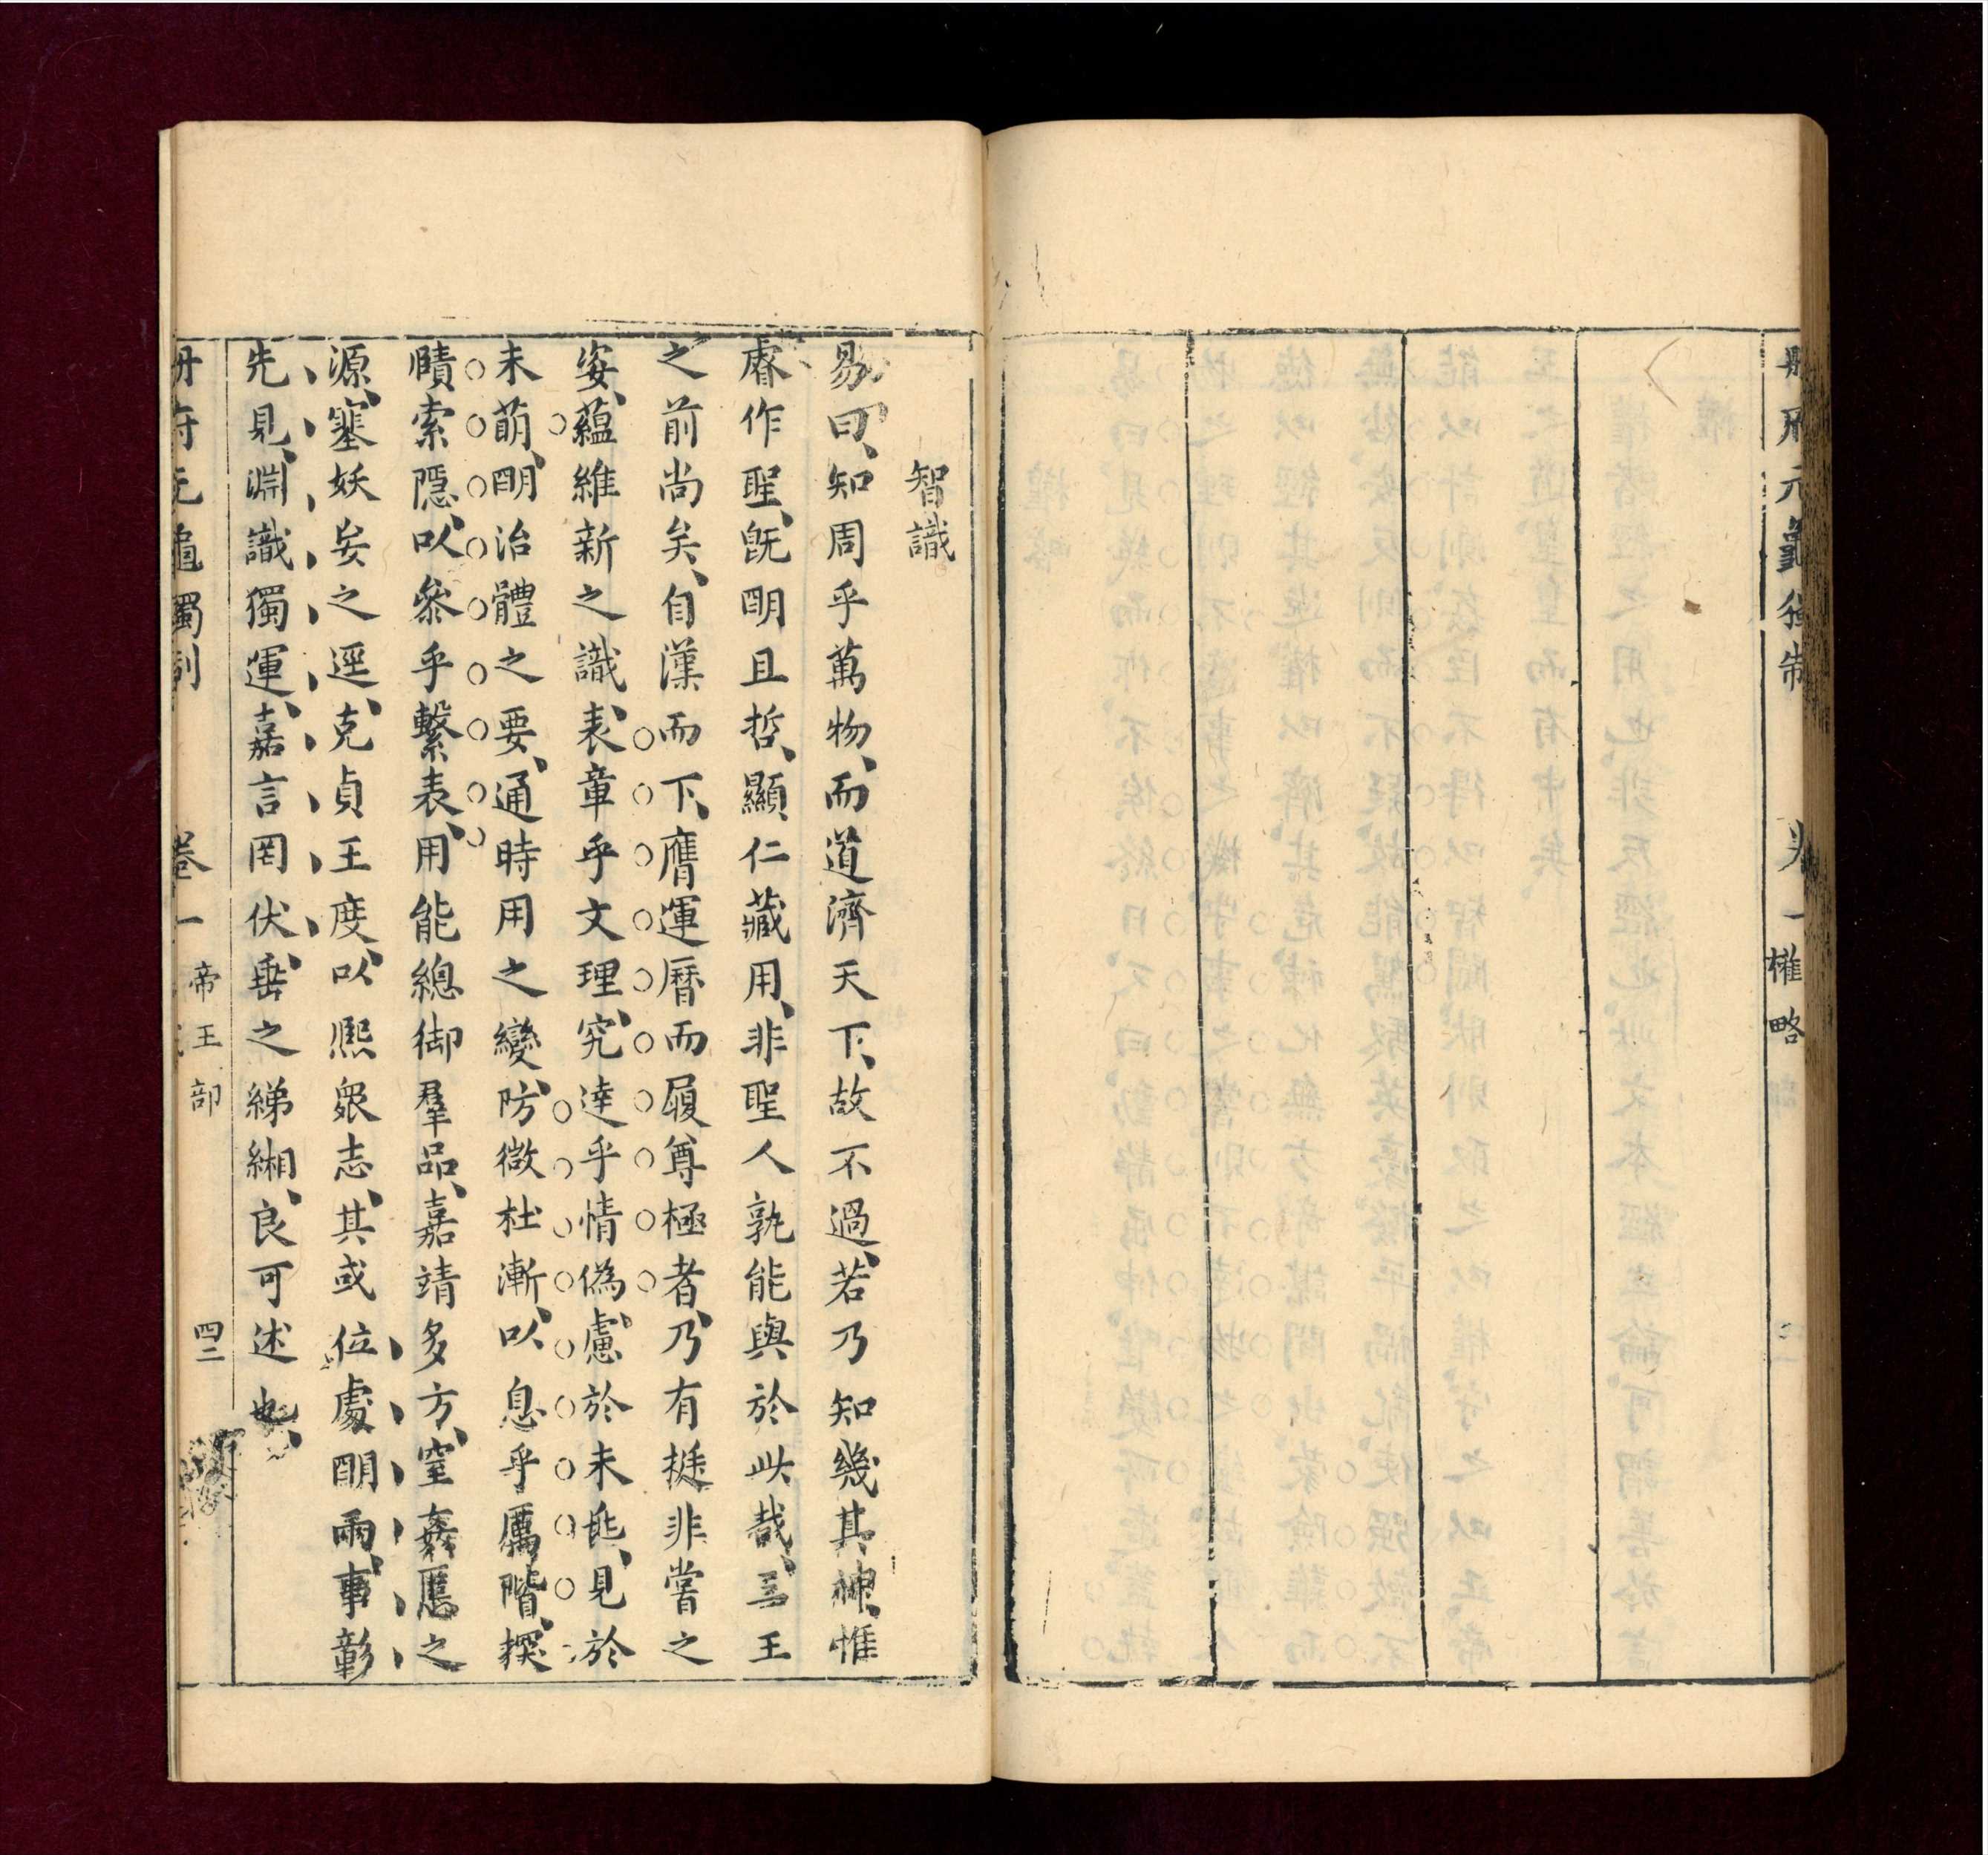 册府元龜獨制 卷一 權略
智識
易曰、知周乎萬物、而道濟天下、故不過、若乃知幾其神、惟
睿作聖、旣明且哲、顯仁藏用、非聖人孰能與於此哉、三王
之前尚矣、自漢而下、膺運曆而履尊極者、乃有挺非嘗之
姿、蘊維新之識、表章乎文理、究達乎情僞、慮於未兆、見於
未萌、明治體之要、通時用之變、防微杜漸、以息乎厲階、探
賾索隱、以叅乎繫表、用能總御羣品、嘉靖多方、窒姦慝之
源、塞妖妄之逕、克貞王度、以熙衆志、其或位處明兩、事彰
先見、淵識獨運、嘉言罔伏、垂之綈緗、良可述也、
册府元龜獨制 卷一 帝王部 四二